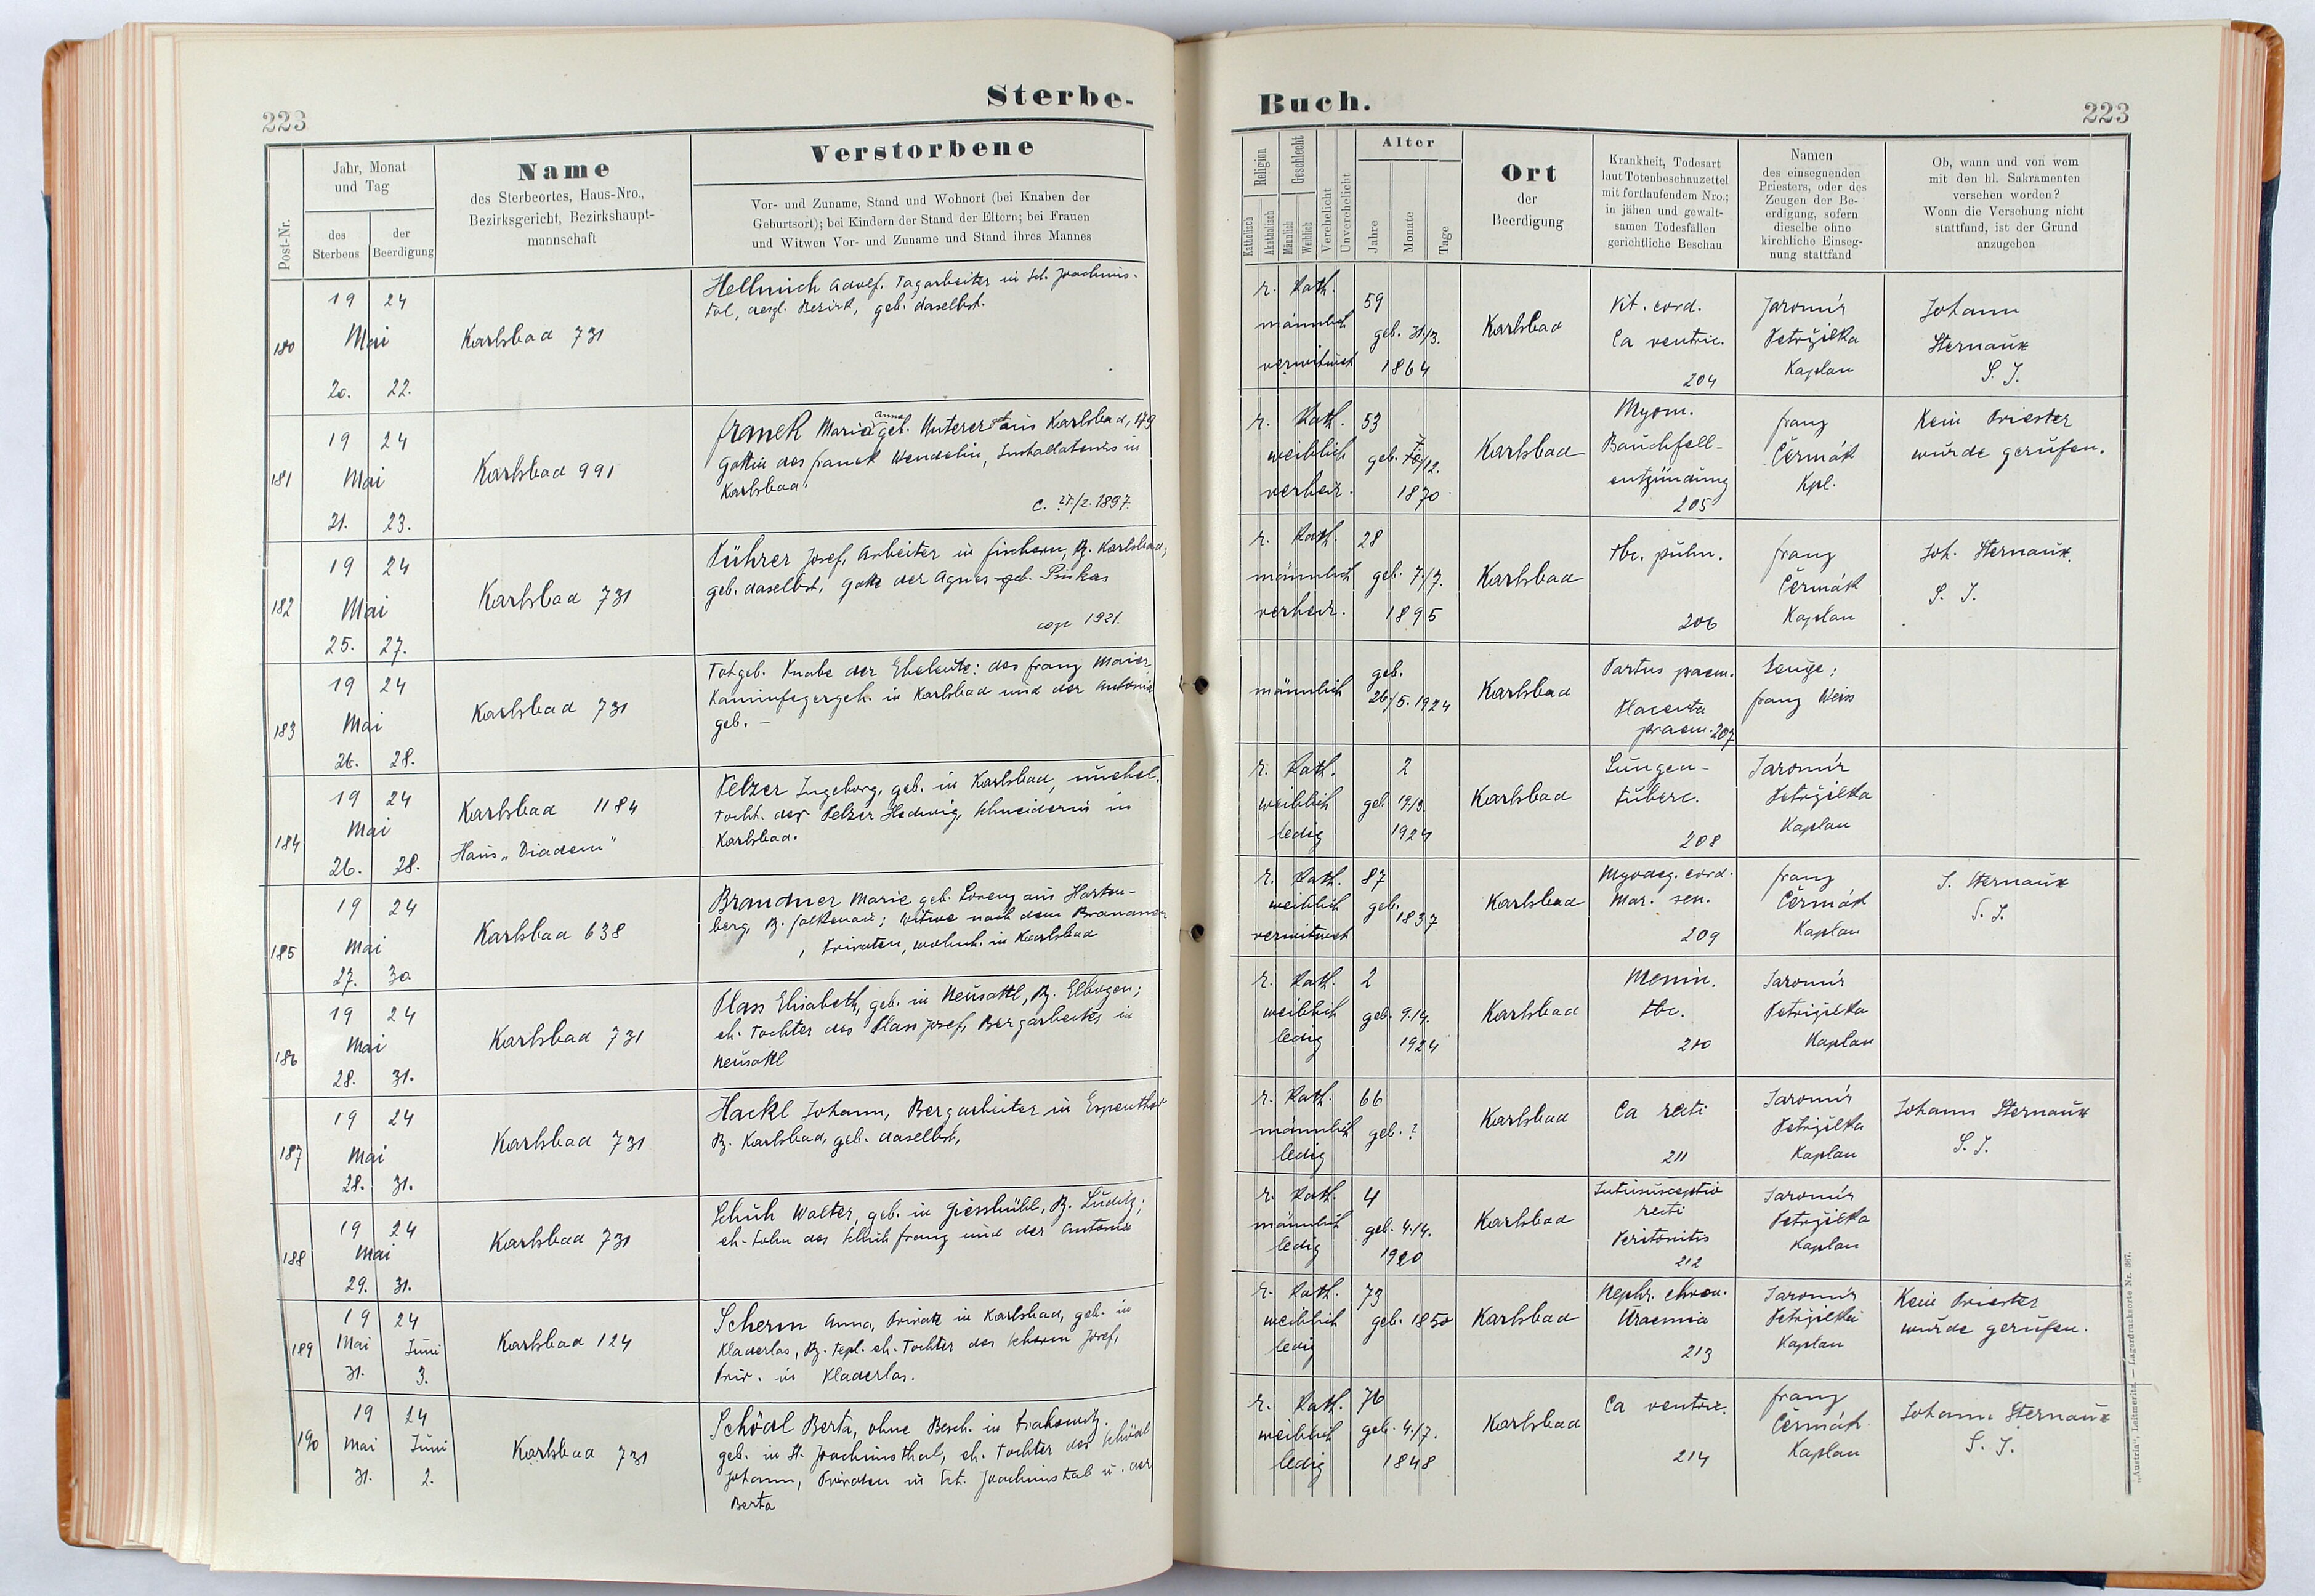 Sterbe-
223
Post-Nr.
Jahr, Monat
und Tag
des
Sterbens
der
Beerdigung
Name
des Sterbeortes, Haus-Nro.,
Bezirksgericht, Bezirkshaupt-
mannschaft
Verstorbene
Vor- und Zuname, Stand und Wohnort (bei Knaben der
Geburtsort); bei Kindern der Stand der Eltern; bei Frauen
und Witwen Vor- und Zuname und Stand ihres Mannes
180
19 24
Mai
20. 22.
Karlsbad 731
Hellmich Adolf, Tagarbeiter in Sct. Joachims-
tal, desgl. Bezirk, geb. daselbst.
181
19 24
Mai
21. 23.
Karlsbad 991
Franck Maria Anna geb. Unterer aus Karlsbad, 179
Gattin des Franck Wendelin, Installateurs in
Karlsbad.
C. 27./2. 1897.
182
19 24
Mai
25. 27.
Karlsbad 731
Führer Josef, Arbeiter in Fischern, Bz. Karlsbad;
geb. daselbst, Gatte der Agnes geb. Pinkas
cop 1921.
183
19 24
Mai
26. 28.
Karlsbad 731
Totgeb. Knabe der Eheleute: des Franz Maier
Kaminfegergeh. in Karlsbad und der Antonia
geb. —
184
19 24
Mai
26. 28.
Karlsbad 1184
Haus „Diadem"
Pelzer Ingeborg, geb. in Karlsbad, unehel.
Tocht. der Pelzer Hedwig, Schneiderin in
Karlsbad.
185
19 24
Mai
27. 30.
Karlsbad 638
Brandner Marie geb. Lorenz aus Harten-
berg, Bz. Falkenau; Witwe nach dem Brandner
, Privaten, wohnh. in Karlsbad
186
19 24
Mai
28. 31.
Karlsbad 731
Plass Elisabeth, geb. in Neusattl, Bz. Elbogen;
eh. Tochter des Plass Josef, Bergarbeiter in
Neusattl
187
19 24
Mai
28. 31.
Karlsbad 731
Hackl Johann, Bergarbeiter in Espenthor
Bz. Karlsbad, geb. daselbst,
188
19 24
Mai
29. 31.
Karlsbad 731
Schuh Walter, geb. in Giesshübl, Bz. Luditz;
eh. Sohn des Schuh Franz und der Antonia
189
19 24
Mai Juni
31. 3.
Karlsbad 124
Scherm Anna, Private in Karlsbad, geb. in
Kladerlas, Bz. Tepl. eh. Tochter des Scherm Josef,
Priv. in Kladerlas.
190
19 24
Mai Juni
31. 2.
Karlsbad 731
Schödl Berta, ohne Besch. in
geb. in St. Joachimsthal, eh. Tochter des Schödl
Johann, Privaten in Sct. Joachimstal u. der
Berta
Buch.
223
Religion
Katholisch
Akatholisch
Geschlecht
Männlich
Weiblich
Verehelicht
Unverehelicht
Alter
Jahre
Monate
Tage
Ort
der
Beerdigung
Krankheit, Todesart
laut Totenbeschauzettel
mit fortlaufendem Nro.;
in jähen und gewalt-
samen Todesfällen
gerichtliche Beschau
Namen
des einsegnenden
Priesters, oder des
Zeugen der Be-
erdigung, sofern
dieselbe ohne
kirchliche Einseg-
nung stattfand
Ob, wann und von wem
mit den hl. Sakramenten
versehen worden?
Wenn die Versehung nicht
stattfand, ist der Grund
anzugeben
r. Kath.
männlich
verwitwet
59
geb. 31/3.
1864
Karlsbad
Vit. cord.
Ca ventric.
204
Jaromír
Petržilka
Kaplan
Johann
Sternaux
S. J.
r. Kath.
weiblich
verheir.
53
geb. /12.
1870
Karlsbad
Myom.
Bauchfell-
entzündung
205
Franz
Čermák
Kpl.
Kein Priester
wurde gerufen.
r. Kath.
männlich
verheir.
28
geb. 7./7.
1895
Karlsbad
tbc. pulm.
206
Franz
Čermák
Kaplan
Joh. Sternaux
S. J.
männlich
geb.
26./5. 1924
Karlsbad
Partus praem.
Placenta
praem. 207
Zeuge:
Franz Weiss
r. Kath.
weiblich
ledig
2
geb. 19./3.
1924
Karlsbad
Lungen-
tuberc.
208
Jaromír
Petržilka
Kaplan
r. Kath.
weiblich
verwitwet
87
geb.
1837
Karlsbad
Myodeg. cord.
Mar. sen.
209
Franz
Čermák
Kaplan
J. Sternaux
S. J.
r. Kath.
weiblich
ledig
2
geb. 9./4.
1924
Karlsbad
Menin.
tbc.
210
Jaromír
Petržilka
Kaplan
r. Kath.
männlich
ledig
66
geb. ?
Karlsbad
Ca recti
211
Jaromír
Petržilka
Kaplan
Johann Sternaux
S. J.
r. Kath.
männlich
ledig
4
geb. 4./4.
1920
Karlsbad
Intussusceptio
recti
Peritonitis
212
Jaromír
Petržilka
Kaplan
r. Kath.
weiblich
ledig
73
geb. 1850
Karlsbad
Nephr. chron.
Uraemia
213
Jaromír
Petržilka
Kaplan
Kein Priester
wurde gerufen.
r. Kath.
weiblich
ledig
76
geb. 4./7.
1848
Karlsbad
Ca ventric.
214
Franz
Čermák
Kaplan
Johann Sternaux
S. J.
„Austria", Leitmeritz. — Lagerdrucksorte Nr. 867.